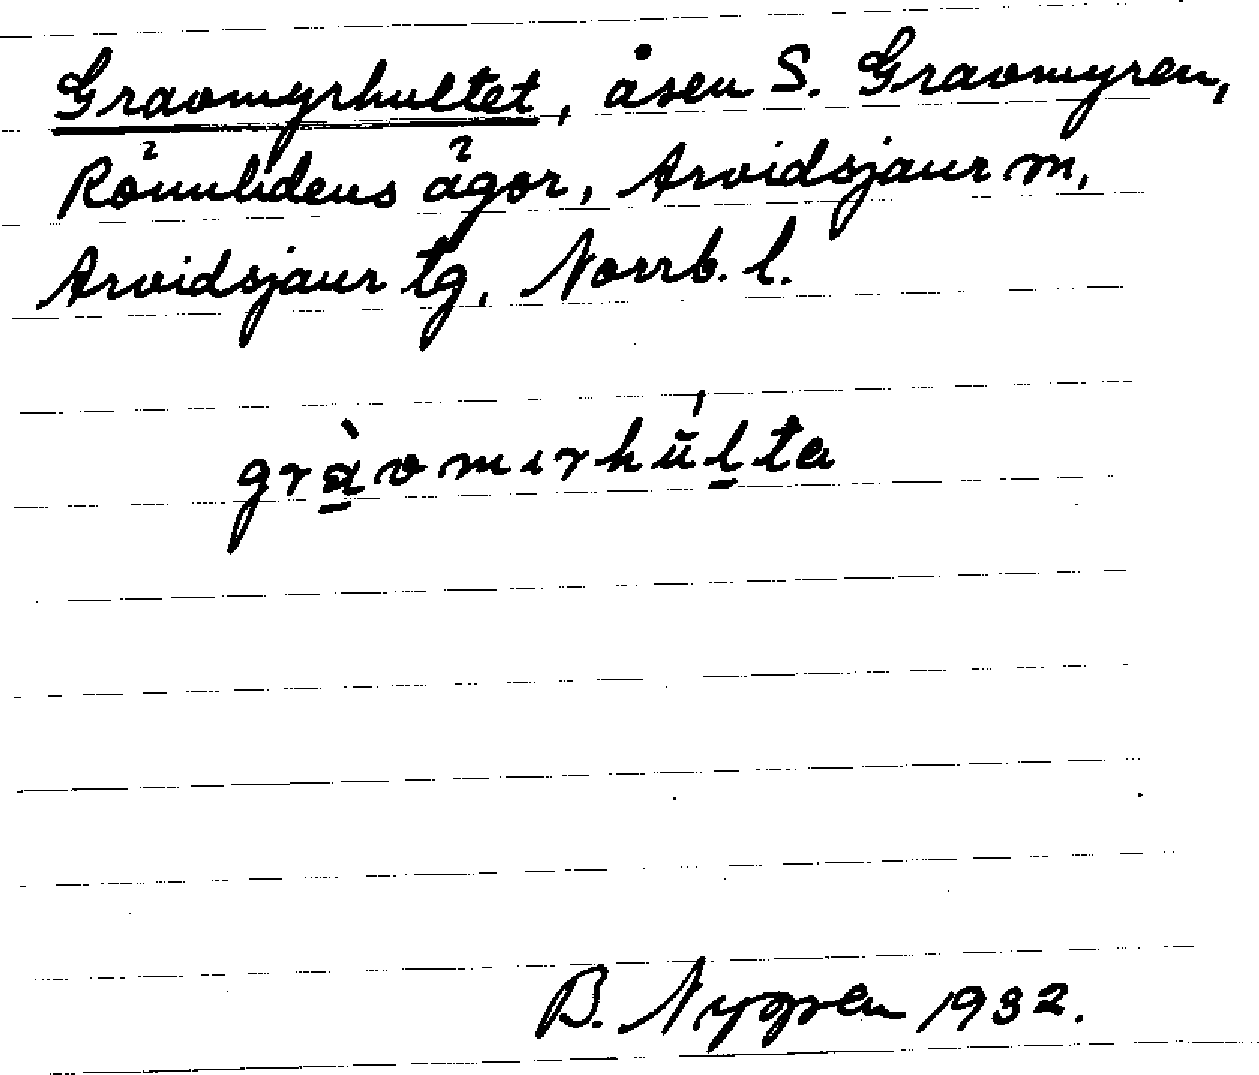 Gravmyrhultet, åsen S. Gravmyren,
Rönnlidens ägor, Arvidsjaur sn,
Arvidsjaur tg, Norrb. l.
gràvmırhú̆lta
B. Nygren 1932.